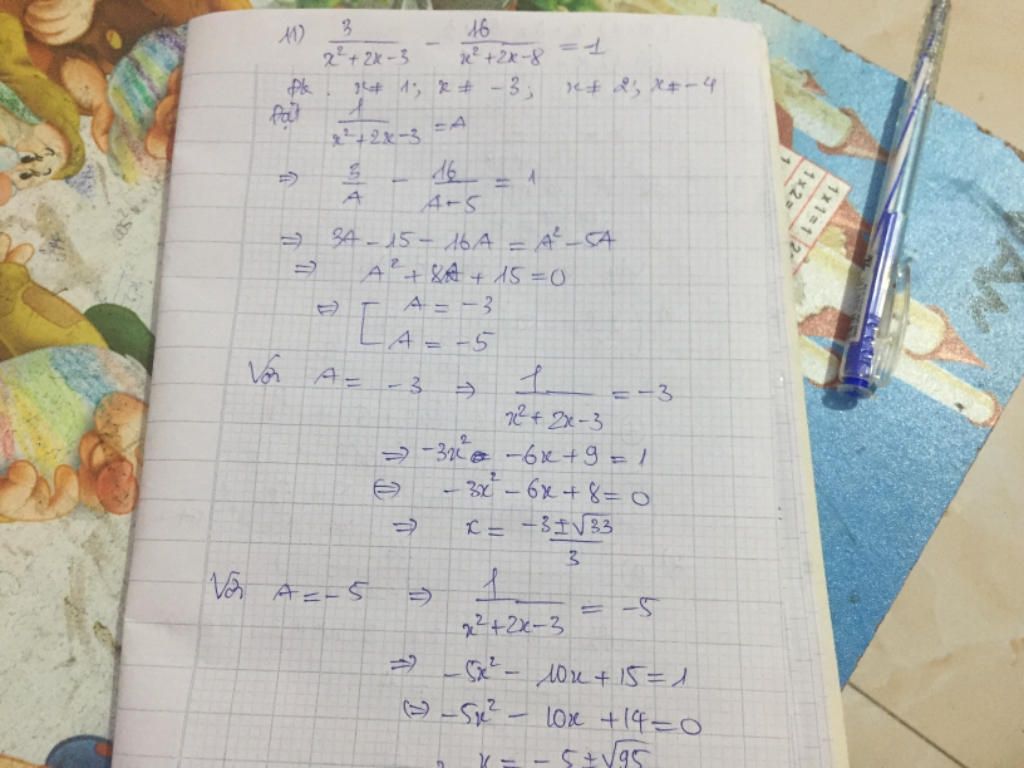 11) 3/(x²+2x-3) - 16/(x²+2x-8) = 1
Đk: x ≠ 1; x ≠ -3; x ≠ 2; x ≠ -4
Đặt 1/(x²+2x-3) = A
=> 3/A - 16/(A-5) = 1
=> 3A - 15 - 16A = A² - 5A
=> A² + 8A + 15 = 0
<=> [ A = -3
A = -5
Với A = -3 => 1/(x²+2x-3) = -3
=> -3x² - 6x + 9 = 1
<=> -3x² - 6x + 8 = 0
=> x = (-3 ± √33)/3
Với A = -5 => 1/(x²+2x-3) = -5
=> -5x² - 10x + 15 = 1
<=> -5x² - 10x + 14 = 0
x = -5 ± √95
1x1=1
1x2=